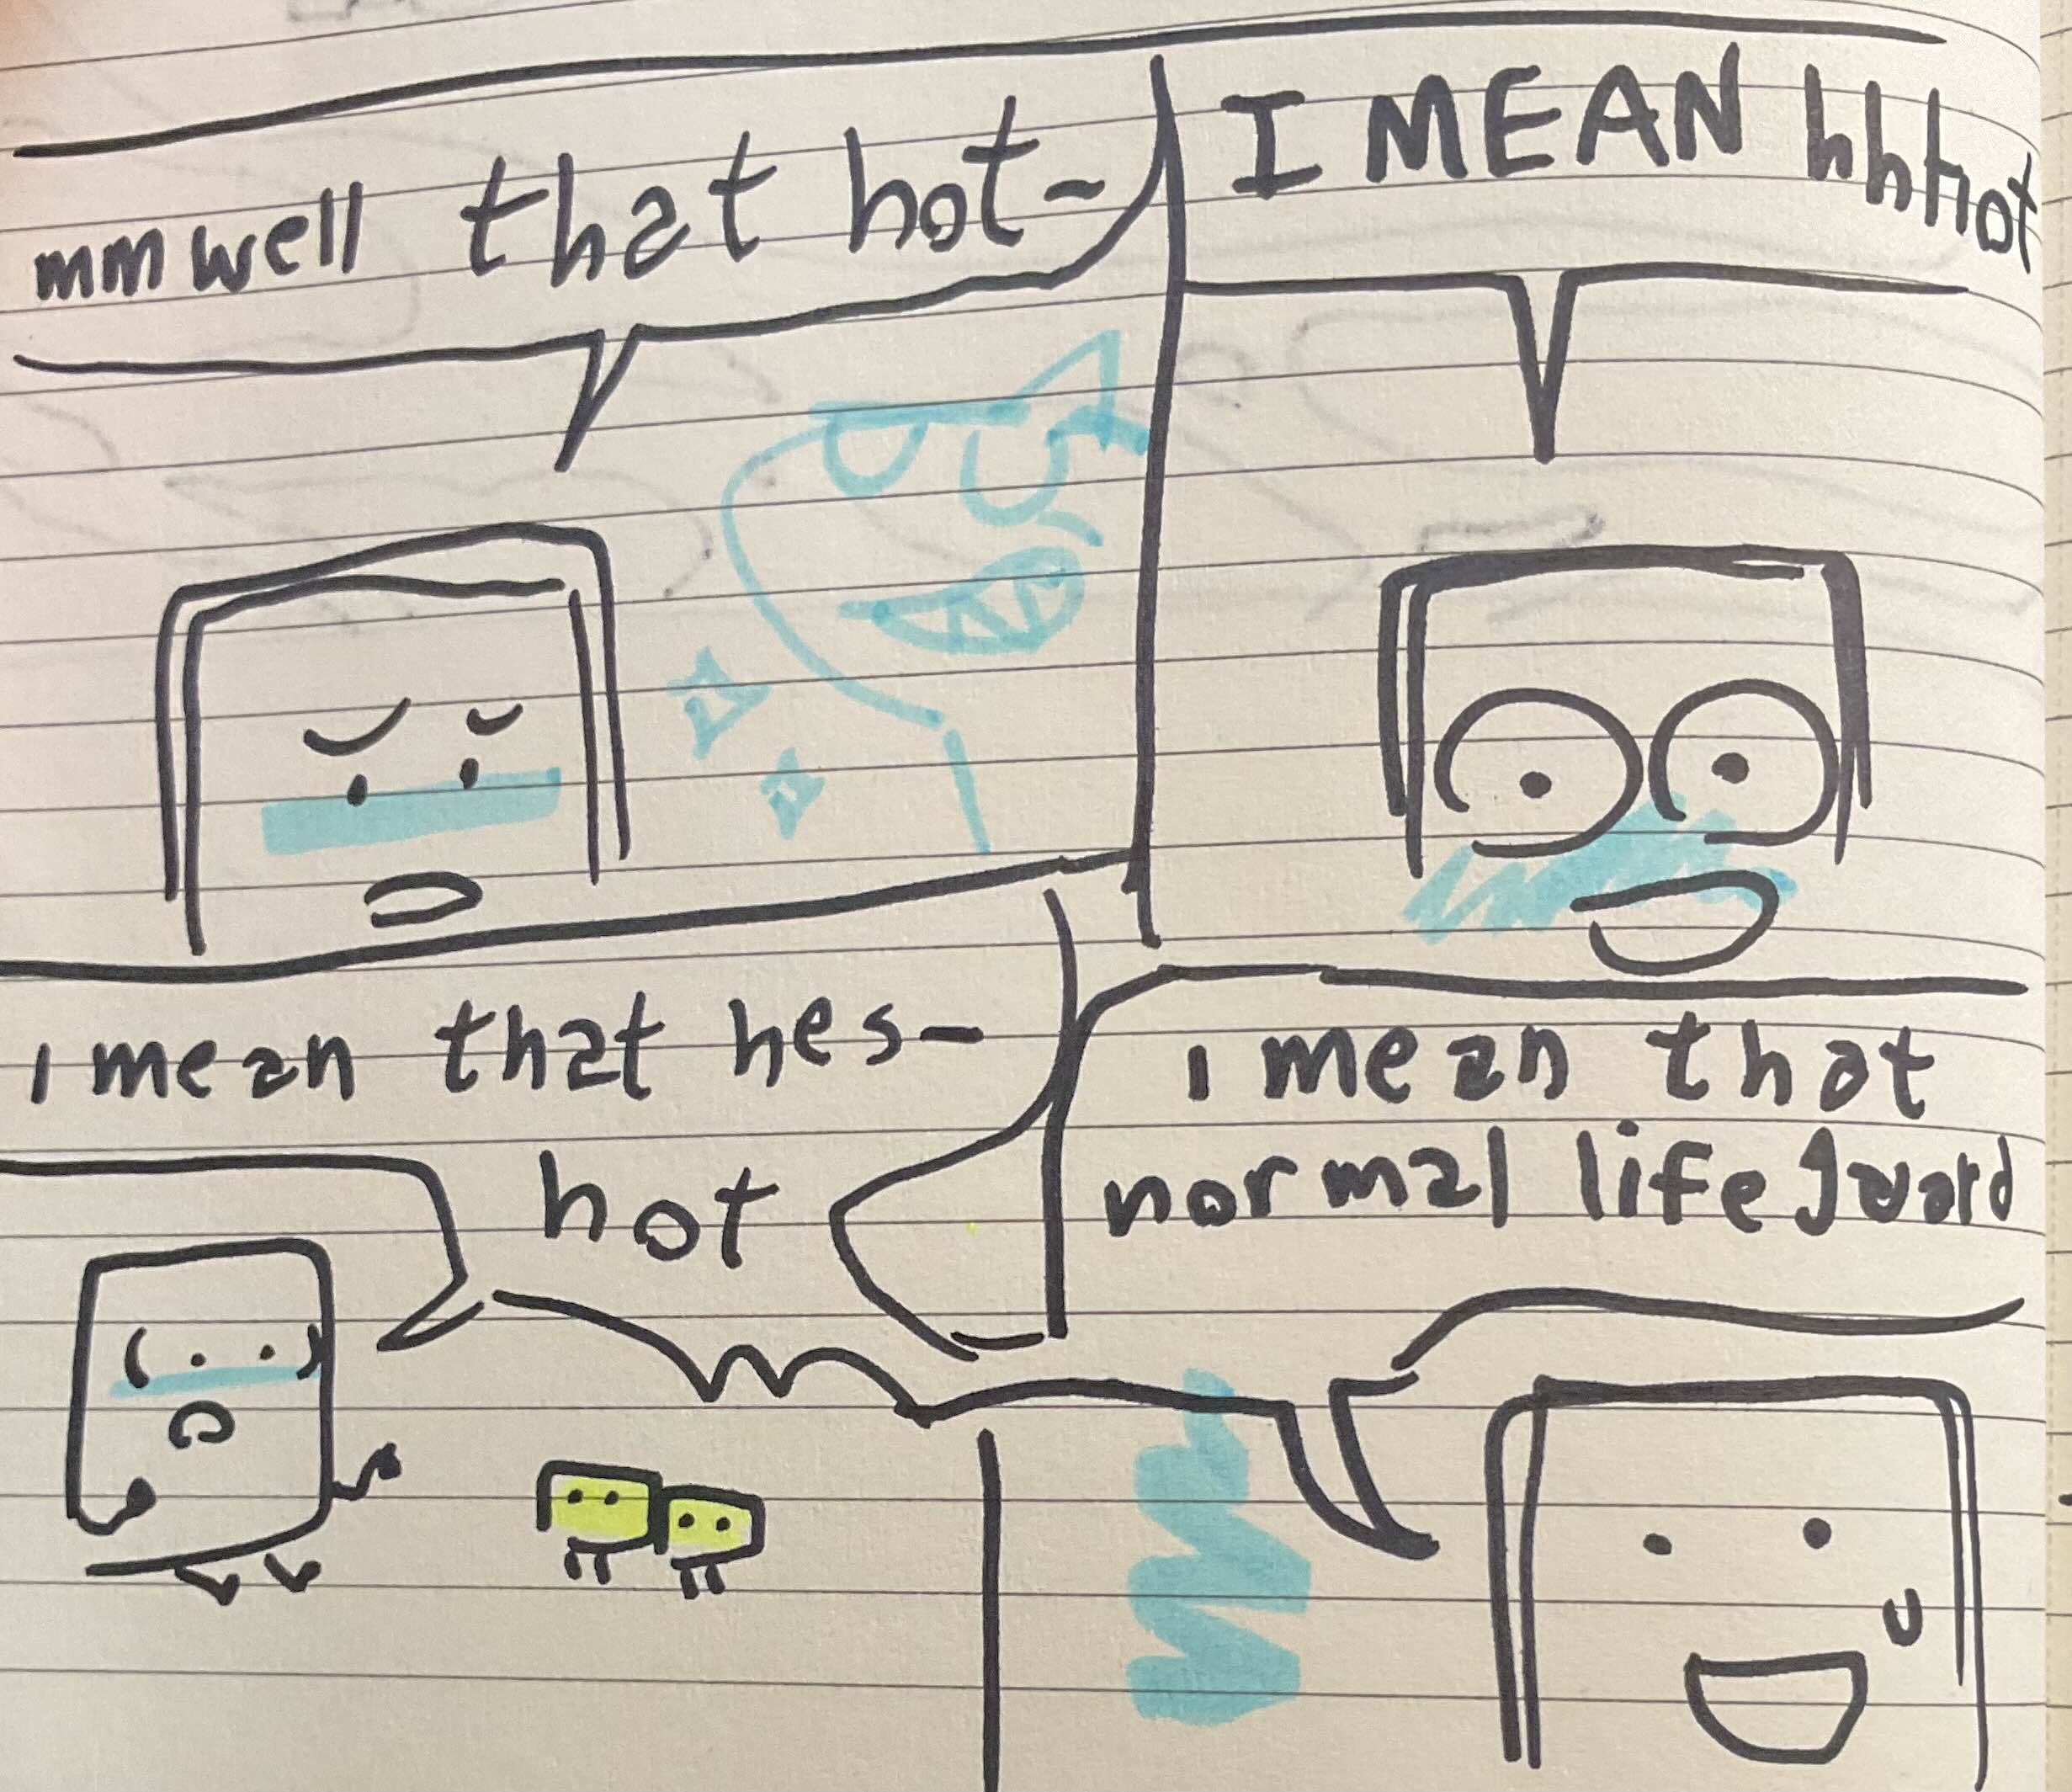 mm well that hot-
I MEAN hhhot
i mean that hes-
hot
i mean that
normal life guard